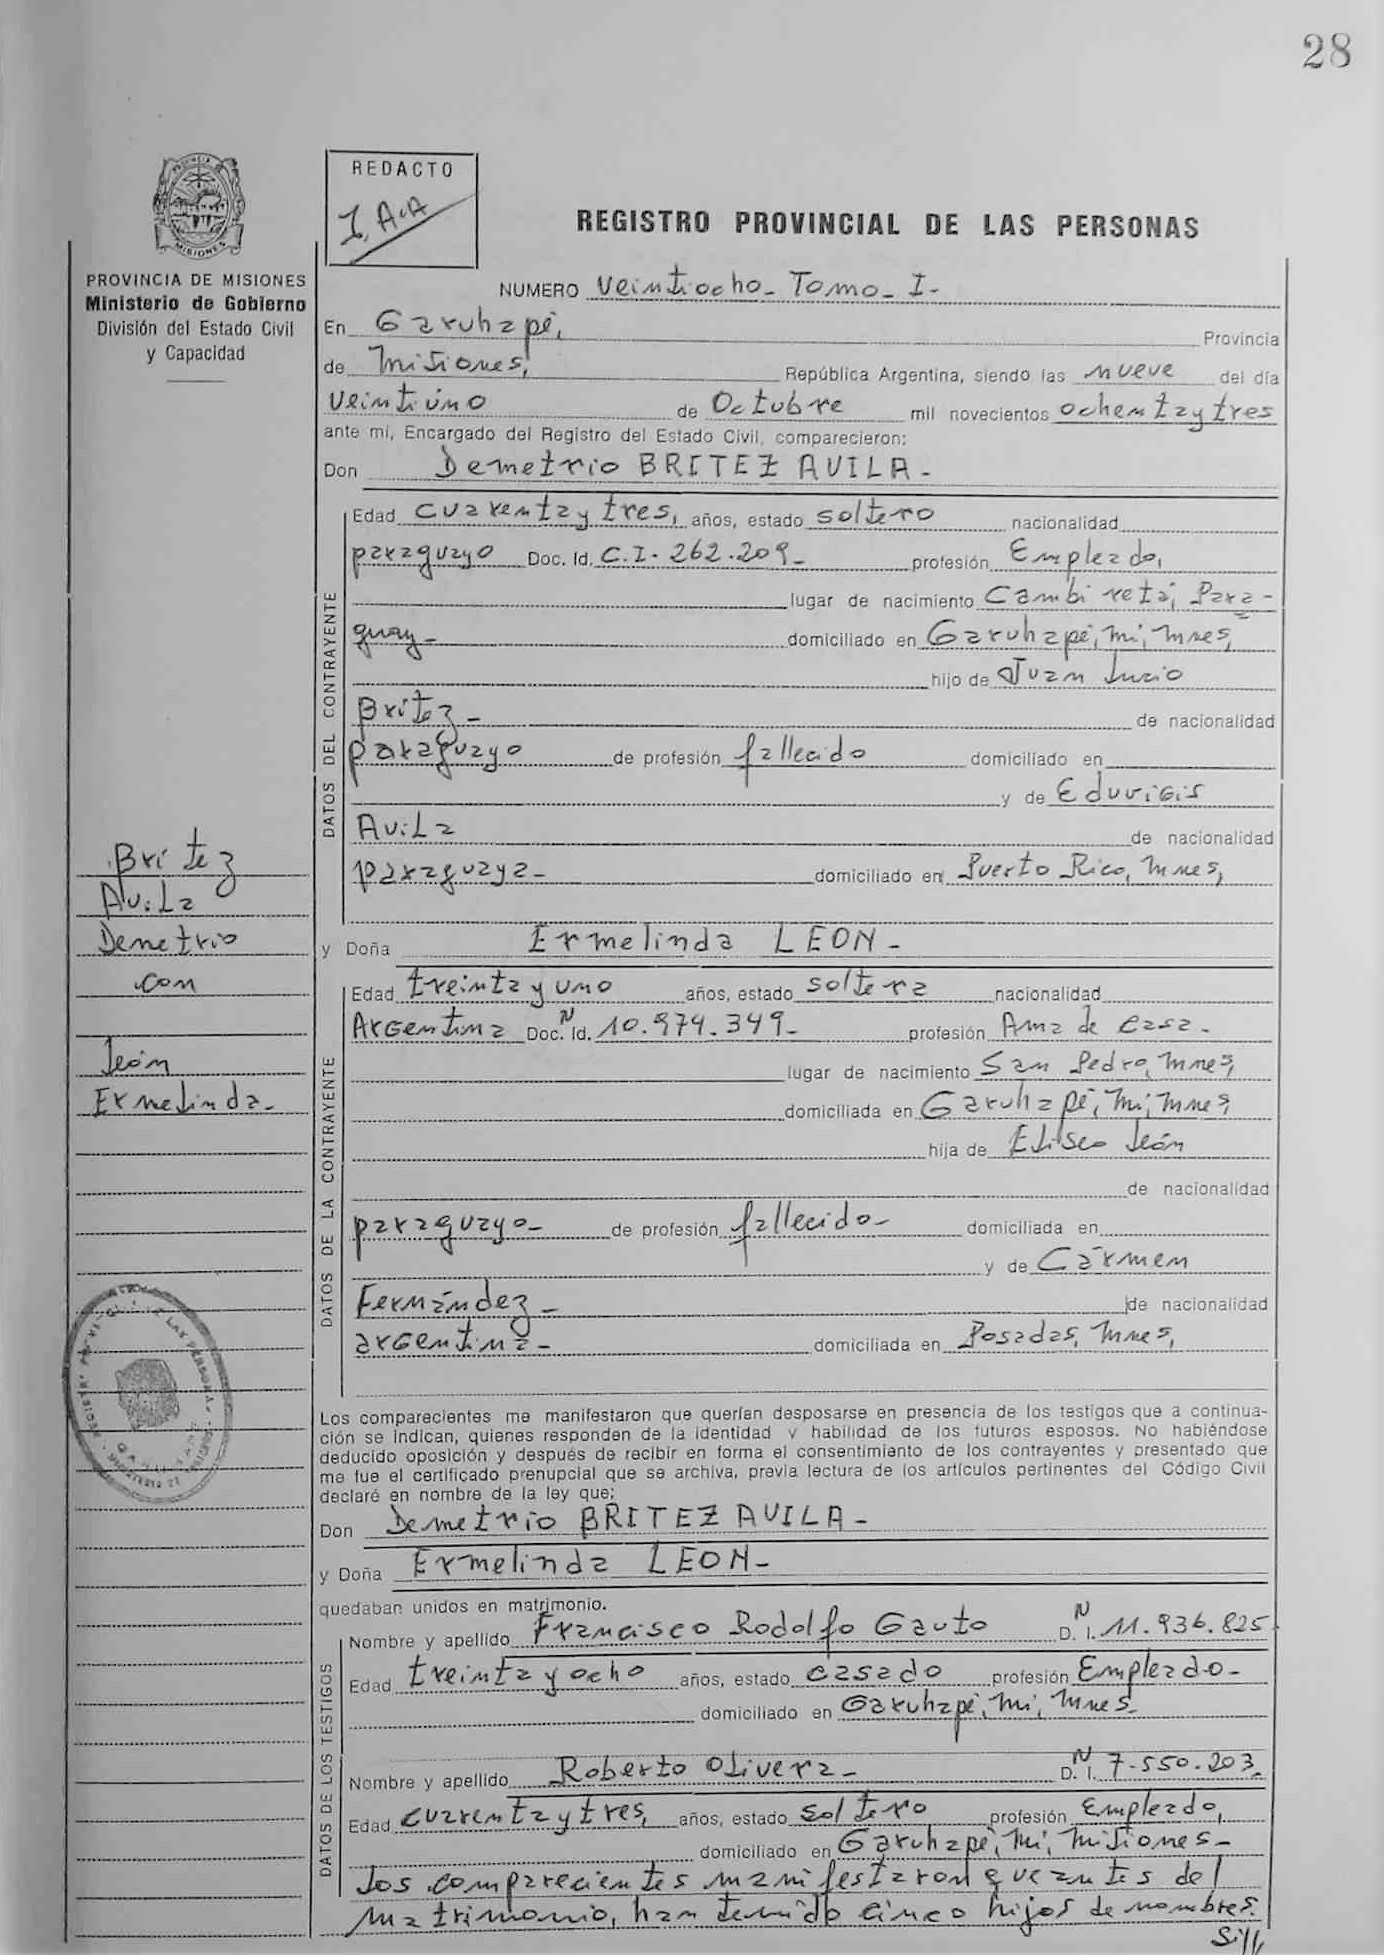 28
REDACTO
REGISTRO PROVINCIAL DE LAS PERSONAS
PROVINCIA DE MISIONES
Ministerio de Gobierno
División del Estado Civil
y Capacidad
NUMERO Veintiocho- Tomo- I-
En Garuhapé, Provincia
de Misiones, República Argentina, siendo las nueve del día
Veintiúno de Octubre mil novecientos ochentaytres
ante mi, Encargado del Registro del Estado Civil, comparecieron:
Don Demetrio BRITEZ AVILA-
DATOS DEL CONTRAYENTE
Edad cuarentaytres, años, estado soltero nacionalidad
paraguayo Doc. Id. C.I. 262.209- profesión Empleado,
lugar de nacimiento Cambiretá, Para-
guay- domiciliado en Garuhapé, Mi, Mnes,
hijo de Juan Lucio
Britez- de nacionalidad
paraguayo de profesión fallecido domiciliado en
y de Eduvigis
Avila de nacionalidad
paraguaya- domiciliado en Puerto Rico, Mnes,
Britez
Avila
Demetrio
con
León
Ermelinda-
y Doña Ermelinda LEON-
DATOS DE LA CONTRAYENTE
Edad treintayuno años, estado soltera nacionalidad
Argentina Doc. N Id. 10.974.349- profesión Ama de casa-
lugar de nacimiento San Pedro, Mnes,
domiciliada en Garuhapé, Mi, Mnes,
hija de Eliseo León
de nacionalidad
paraguayo- de profesión fallecido- domiciliada en
y de Cármen
Fernández- de nacionalidad
argentina- domiciliada en Posadas, Mnes,
Los comparecientes me manifestaron que querían desposarse en presencia de los testigos que a continua-
ción se indican, quienes responden de la identidad y habilidad de los futuros esposos. No habiéndose
deducido oposición y después de recibir en forma el consentimiento de los contrayentes y presentado que
me fue el certificado prenupcial que se archiva, previa lectura de los artículos pertinentes del Código Civil
declaré en nombre de la ley que:
Don Demetrio BRITEZ AVILA-
y Doña Ermelinda LEON-
quedaban unidos en matrimonio.
DATOS DE LOS TESTIGOS
Nombre y apellido Francisco Rodolfo Gauto D. N I. 11.936.825
Edad treintayocho años, estado casado profesión Empleado-
domiciliado en Garuhapé, Mi, Mnes-
Nombre y apellido Roberto Olivera- D. N I. 7.550.203,
Edad cuarentaytres, años, estado soltero profesión Empleado,
domiciliado en Garuhapé, Mi, Misiones-
Los comparecientes manifestaron que antes del
matrimonio, han tenido cinco hijos de nombres